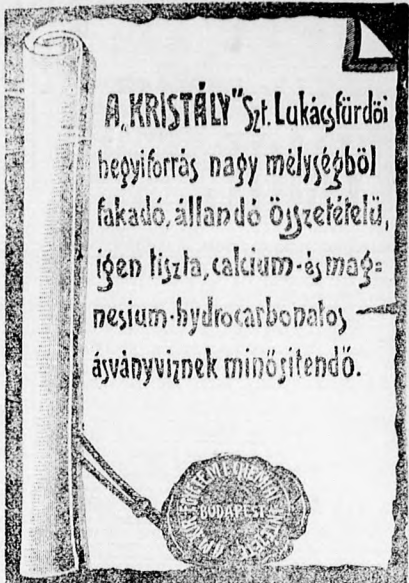 A „KRISTÁLY" Szt. Lukácsfürdői
hegyiforrás nagy mélységből
fakadó, állandó összetételű,
igen tiszta, calcium-és mag=
nesium-hydrocarbonatos
ásványviznek minősítendő.
BUDAPEST